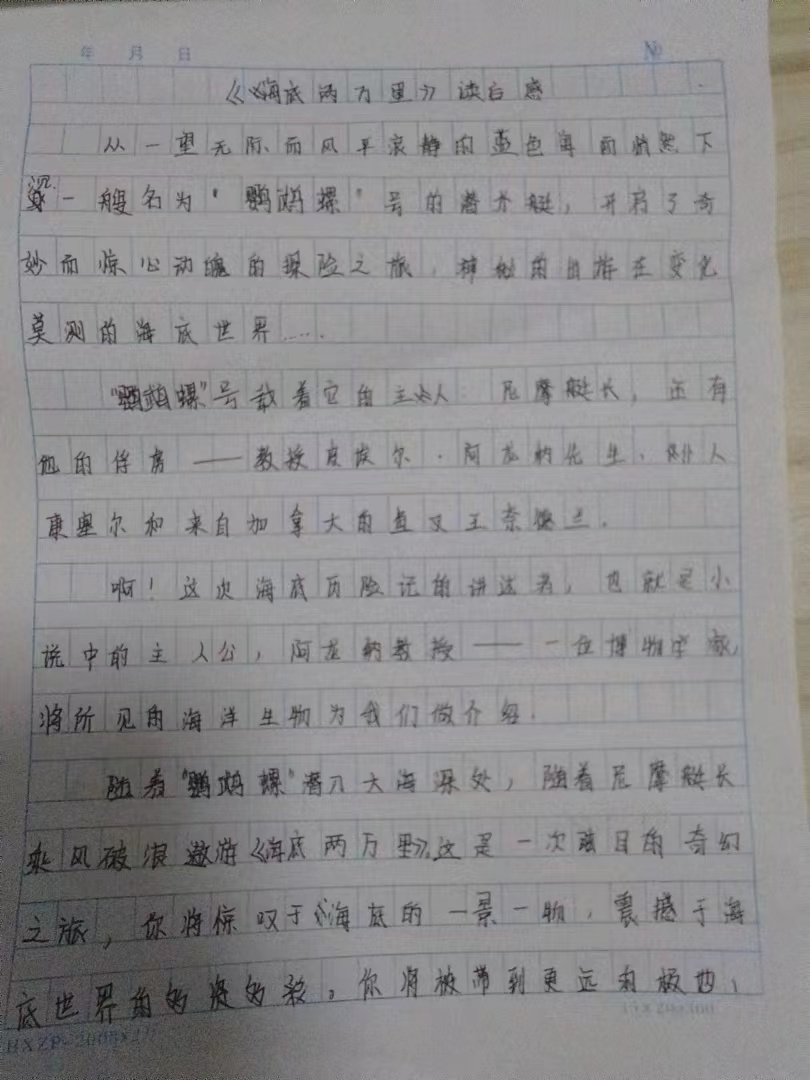 年 月 日 №
《海底两万里》读后感
从一望无际而风平浪静的蓝色海面悄然下
沉一艘名为"鹦鹉螺"号的潜水艇，开启了奇
妙而惊心动魄的探险之旅，神秘的出游在变化
莫测的海底世界……
"鹦鹉螺"号载着它的主人 尼摩艇长，还有
他的俘虏——教授皮埃尔·阿龙纳先生、仆人
康塞尔和来自加拿大的鱼叉王奈德兰.
啊！这次海底历险记的讲述者，也就是小
说中的主人公，阿龙纳教授——一位博物学家，
将所见的海洋生物为我们做介绍.
随着"鹦鹉螺"潜入大海深处，随着尼摩艇长
乘风破浪遨游《海底两万里》,这是一次瞩目的奇幻
之旅，你将惊叹于海底的一景一物，震撼于海
底世界的弱肉强食。你将被带到更远的
15×20=300